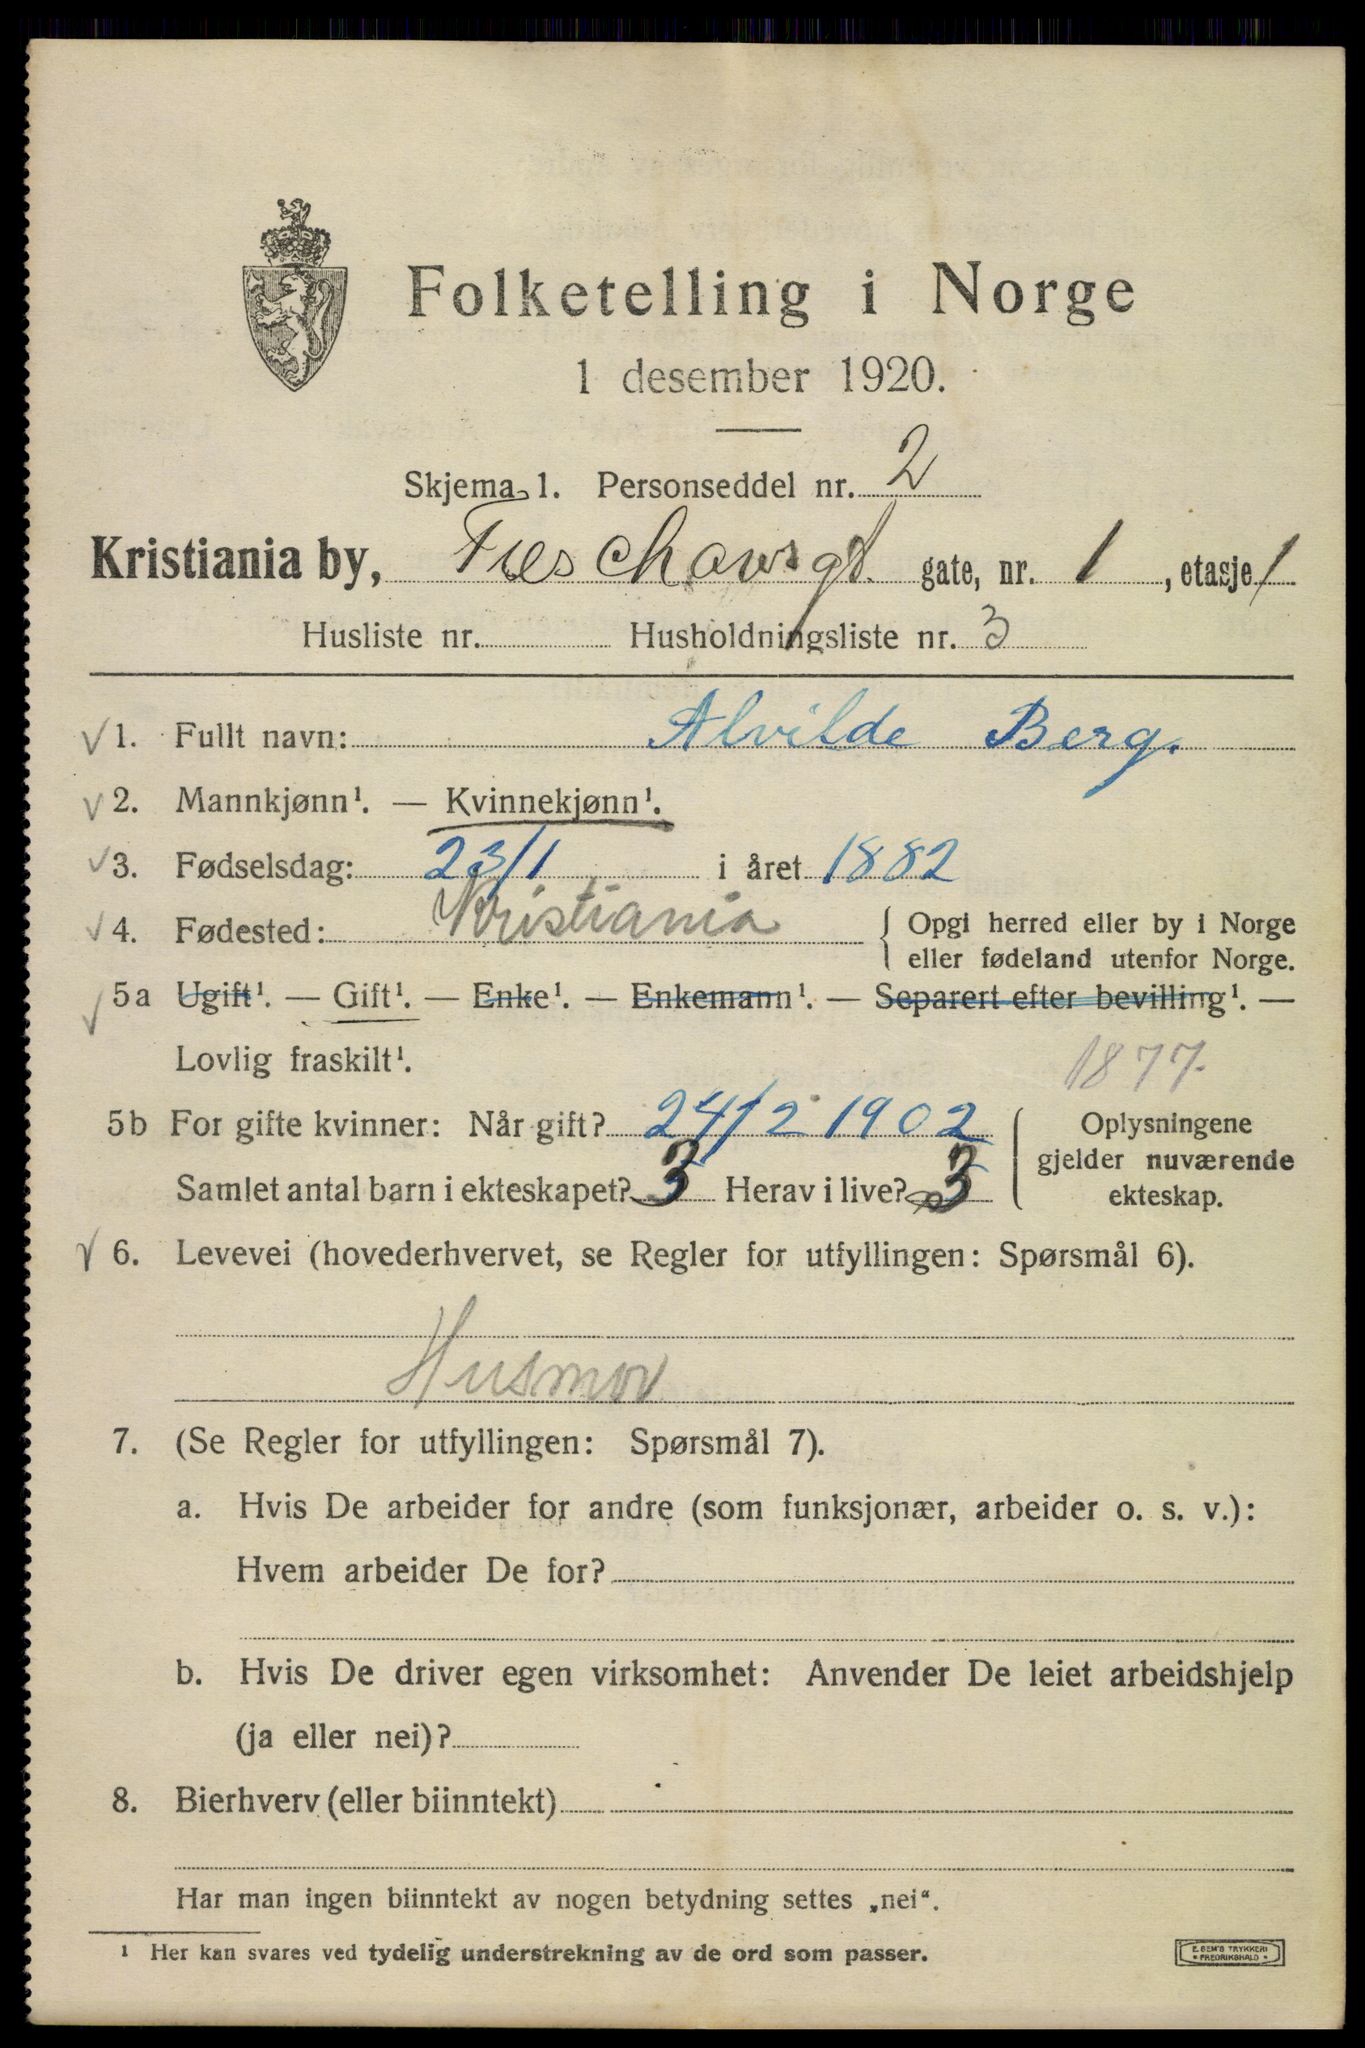 Folketelling i Norge
1 desember 1920.
Skjema 1. Personseddel nr. 2
Kristiania by, gate, nr. 1, etasje 1
Husliste nr. Husholdningsliste nr. 3
1. Fullt navn: Alvilde Berg.
2. Mannkjønn¹. — Kvinnekjønn¹.
3. Fødselsdag: 23/1 i året 1882
4. Fødested: Kristiania { Opgi herred eller by i Norge
eller fødeland utenfor Norge.
5a Ugift¹. — Gift¹. — Enke¹. — Enkemann¹. — Separert efter bevilling¹. —
Lovlig fraskilt¹.
1877.
5b For gifte kvinner: Når gift? 24/2 1902
Samlet antal barn i ekteskapet? 3 Herav i live? 3
Oplysningene
gjelder nuværende
ekteskap.
6. Levevei (hovederhvervet, se Regler for utfyllingen: Spørsmål 6).
Husmor
7. (Se Regler for utfyllingen: Spørsmål 7).
a. Hvis De arbeider for andre (som funksjonær, arbeider o. s. v.):
Hvem arbeider De for?
b. Hvis De driver egen virksomhet: Anvender De leiet arbeidshjelp
(ja eller nei)?
8. Bierhverv (eller biinntekt)
Har man ingen biinntekt av nogen betydning settes „nei“.
¹ Her kan svares ved tydelig understrekning av de ord som passer.
E. SEM'S TRYKKERI
• FREDRIKSHALD •